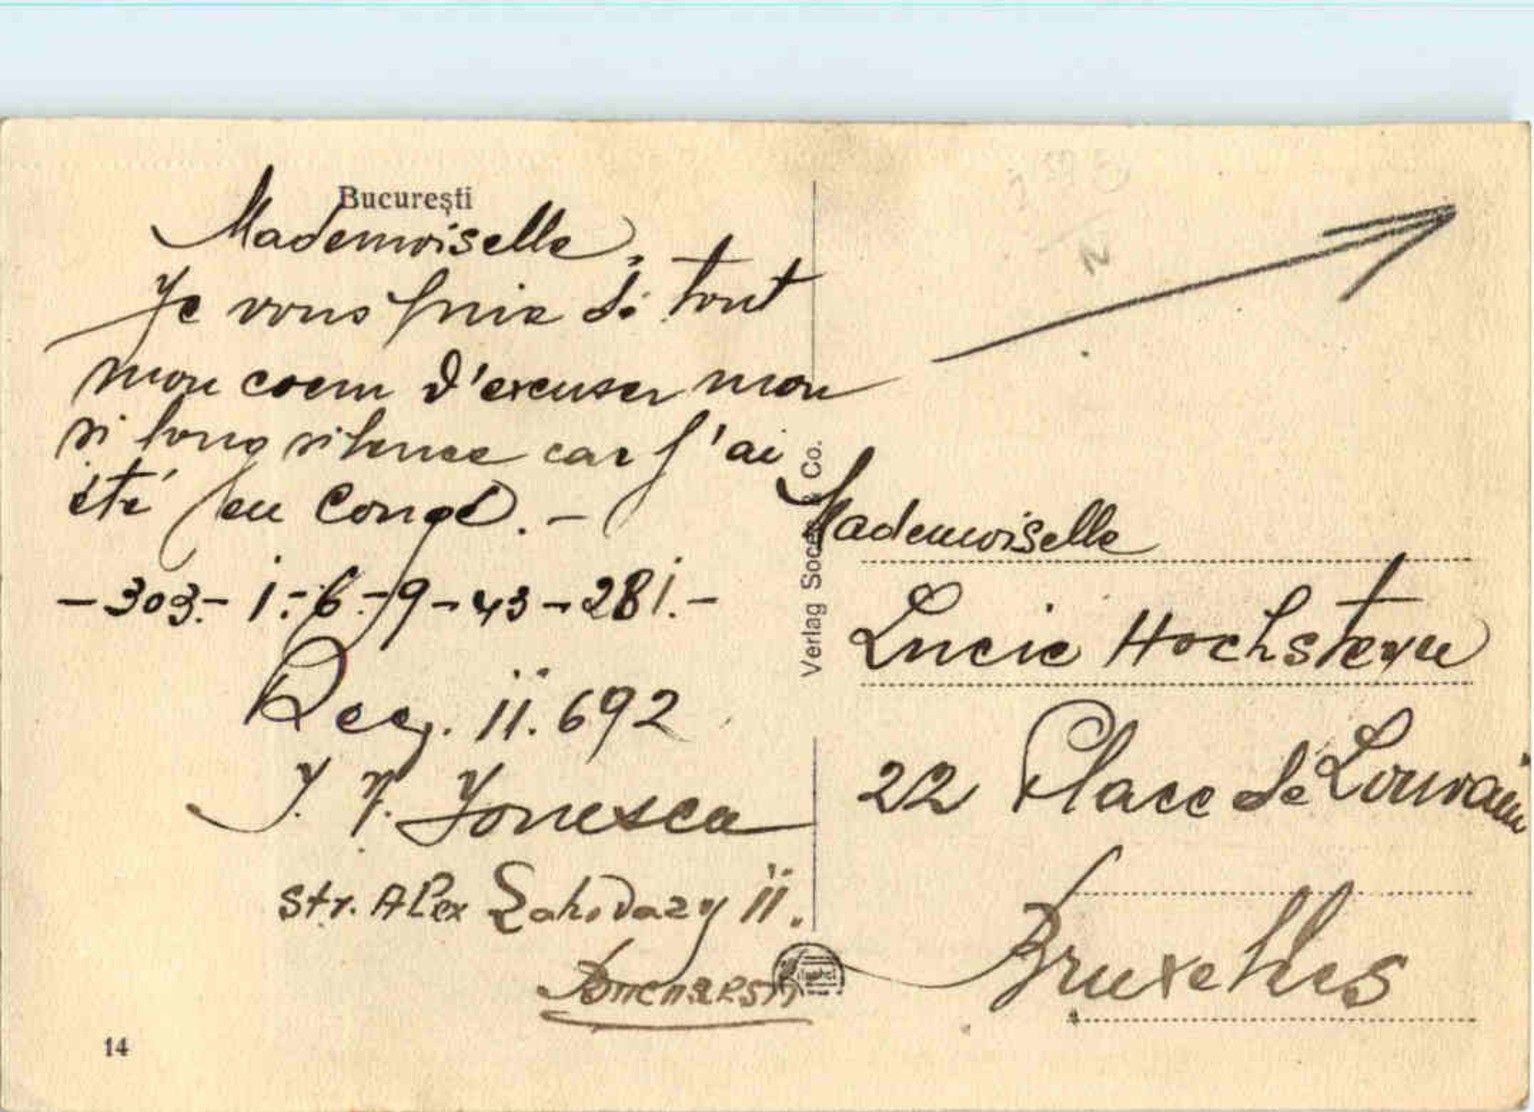 București
Mademoiselle,
Je vous prie de tout
mon coeur d'excuser mon
si long silence car j'ai
été en congé. -
- 303.- 1.- 6.- 9 - 43 - 281. -
Reg. 11. 692
J. N. Jonescu
str. Alex Lahovary 11.
Bucuresti
14
Verlag Socec & Co.
Mademoiselle
Lucie Hochsteyn
22 Place de Louvain
Bruxelles